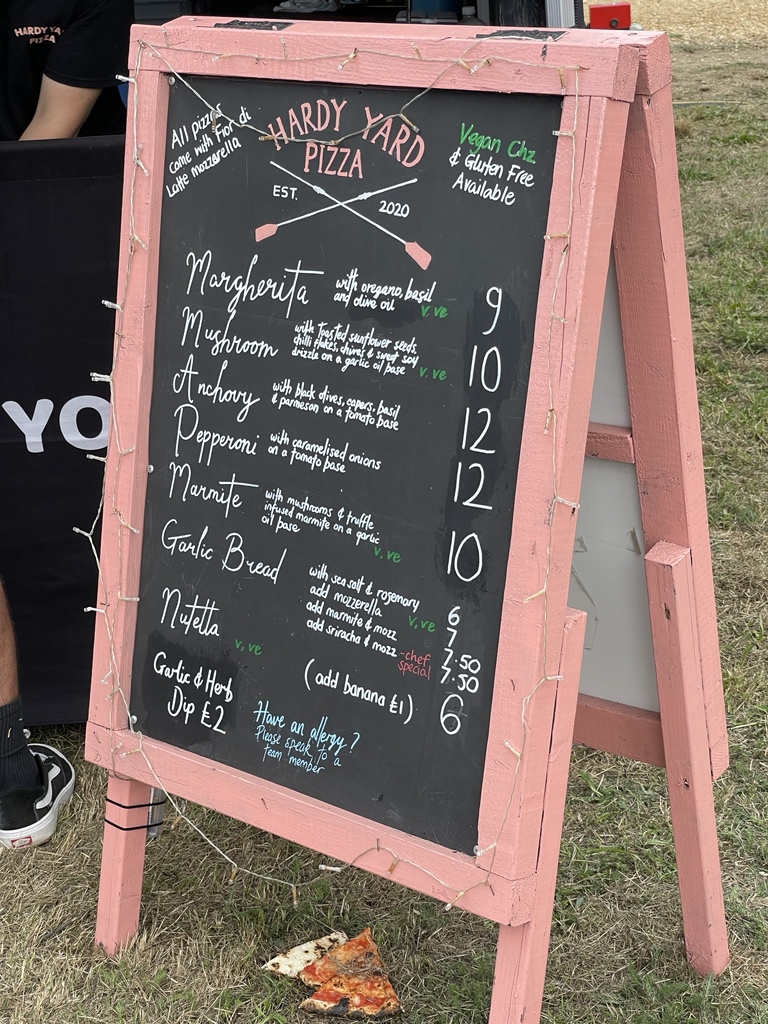 HARDY YA
PIZZA
All pizzas
come with Fior di
Latte mozzarella
HARDY YARD
PIZZA
EST. 2020
Vegan Chz
& Gluten Free
Available
Margherita
with oregano, basil
and olive oil
v, ve
9
Mushroom
with toasted sunflower seeds,
chilli flakes, chives & sweet soy
drizzle on a garlic oil base
v, ve
10
Anchovy
with black olives, capers, basil
& parmeson on a tomato base
12
Pepperoni
with caramelised onions
on a tomato base
12
Marmite
with mushrooms & truffle
infused marmite on a garlic
oil base
v, ve
10
Garlic Bread
with sea salt & rosemary 6
add mozzerella 7
v, ve
add marmite & mozz 7.50
add sriracha & mozz 7.50
-chef
special
Nutella
v, ve
6
(add banana £1)
6
Garlic & Herb
Dip £2
Have an allergy?
Please speak to a
team member
YO